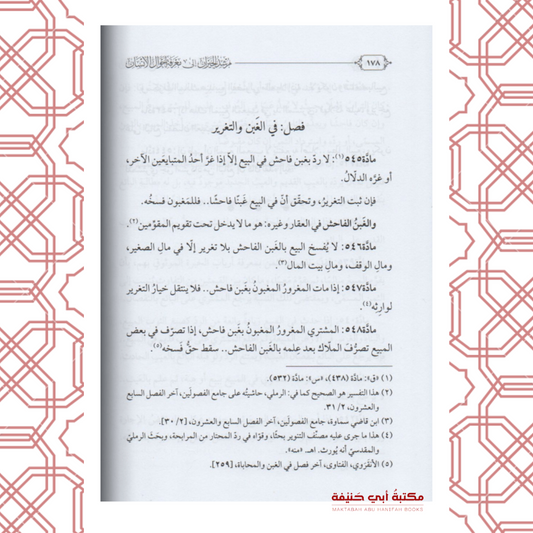 مرشد الحيران إلى معرفة أحوال الإنسان
١٧٨
فصل: في الغَبن والتغرير
مادَّة٥٤٥(١): لا ردَّ بغبن فاحش في البيع إلاّ إذا غرَّ أحدُ المتبايعَين الآخر،
أو غرَّه الدلّالُ.
فإن ثبت التغريرُ، وتحقّق أنّ في البيع غَبنًا فاحشًا.. فللمَغبون فسخُه.
والغَبنُ الفاحش في العقار وغيره: هو ما لا يدخل تحت تقويم المقوِّمين(٢).
مادَّة٥٤٦: لا يُفسخ البيع بالغَبن الفاحش بلا تغرير إلّا في مال الصغير،
ومالِ الوقف، ومالِ بيت المال(٣).
مادَّة٥٤٧: إذا مات المغرورُ المغبونُ بغَبن فاحش.. فلا ينتقل خيارُ التغرير
لوارِثه(٤).
مادَّة٥٤٨: المشتري المغرورُ المغبونُ بغَبن فاحش، إذا تصرّف في بعض
المبيع تصرُّفَ الملّاك بعد عِلمه بالغَبن الفاحش.. سقط حقُّ فَسخه(٥).
(١) «ق»: مادَّة (٤٣٨)، «س»: مادَّة (٥٣٢).
(٢) هذا التفسير هو الصحيح كما في: الرملي، حاشيتُه على جامع الفصولَين، آخر الفصل السابع
والعشرون، ٢/ ٣١.
(٣) ابن قاضي سماوة، جامع الفصولَين، آخر الفصل السابع والعشرون، [٢/ ٣٠].
(٤) هذا ما جرى عليه مصنِّف التنوير بحثًا، وقوّاه في ردّ المحتار من المرابحة، وبحَث الرمليّ
والمقدسيّ أنه يُورث. اهـ. «منه».
(٥) الأنقرَوي، الفتاوى، آخر فصل في الغبن والمحاباة، [٢٥٩].
مكتبة أبي حنيفة
MAKTABAH ABU HANIFAH BOOKS